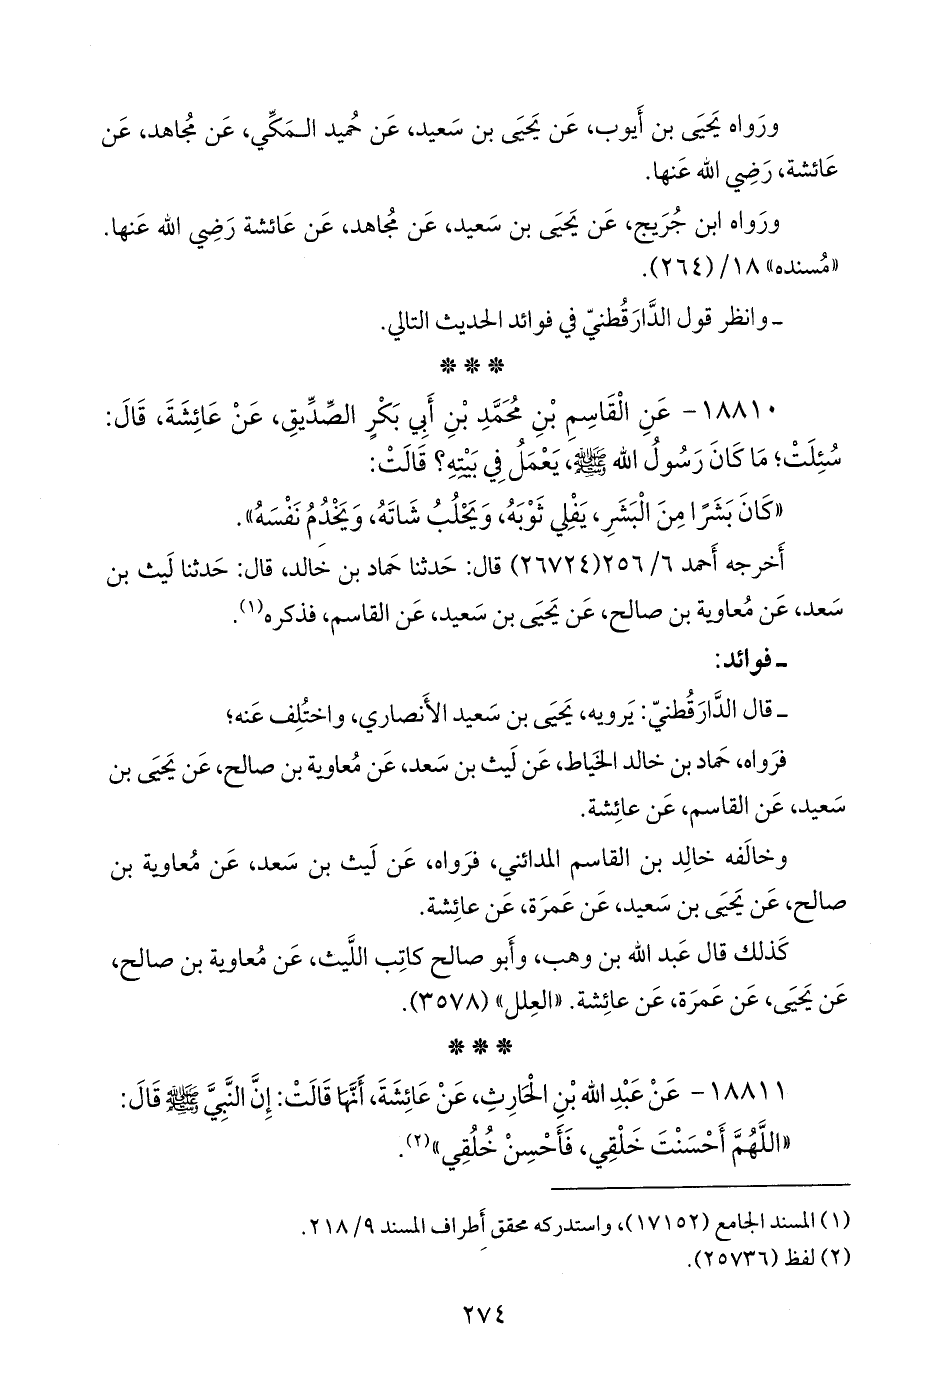 ورَواه يَحيَى بن أَيوب، عَن يَحيَى بن سَعيد، عَن حُميد الـمَكِّي، عَن مُجاهد، عَن
عَائشة، رَضِي الله عَنها.
ورَواه ابن جُرَيج، عَن يَحيَى بن سَعيد، عَن مُجاهد، عَن عَائشة رَضِي الله عَنها.
«مُسنده» ١٨/ (٢٦٤).
ـ وانظر قول الدَّارَقُطنيّ في فوائد الحديث التالي.
* * *
١٨٨١٠- عَنِ الْقَاسِمِ بْنِ مُحَمَّدِ بْنِ أَبِي بَكْرٍ الصِّدِّيقِ، عَنْ عَائِشَةَ، قَالَ:
سُئِلَتْ؛ مَا كَانَ رَسُولُ الله ﷺ، يَعْمَلُ فِي بَيْتِهِ؟ قَالَتْ:
«كَانَ بَشَرًا مِنَ الْبَشَرِ، يَفْلِي ثَوْبَهُ، وَيَحْلُبُ شَاتَهُ، وَيَخْدُمُ نَفْسَهُ».
أَخرجه أَحمد ٦/ ٢٥٦(٢٦٧٢٤) قال: حَدثنا حَماد بن خَالد، قال: حَدثنا لَيث بن
سَعد، عَن مُعاوية بن صالح، عَن يَحيَى بن سَعيد، عَن القاسم، فذكره(١).
ـ فوائد:
ـ قال الدَّارَقُطنيّ: يَرويه، يَحيَى بن سَعيد الأَنصاري، واختُلِف عَنه؛
فرَواه، حَماد بن خالد الخَياط، عَن لَيث بن سَعد، عَن مُعاوية بن صالح، عَن يَحيَى بن
سَعيد، عَن القاسم، عَن عائِشة.
وخالَفه خالِد بن القاسم المدائني، فرَواه، عَن لَيث بن سَعد، عَن مُعاوية بن
صالح، عَن يَحيَى بن سَعيد، عَن عَمرَة، عَن عائِشة.
كَذلك قال عَبد الله بن وهب، وأَبو صالح كاتِب اللَّيث، عَن مُعاوية بن صالح،
عَن يَحيَى، عَن عَمرَة، عَن عائِشة. «العِلل» (٣٥٧٨).
* * *
١٨٨١١- عَنْ عَبْدِ الله بْنِ الْحَارِثِ، عَنْ عَائِشَةَ، أَنَّهَا قَالَتْ: إِنَّ النَّبِيَّ ﷺ قَالَ:
«اللَّهُمَّ أَحْسَنْتَ خَلْقِي، فَأَحْسِنْ خُلُقِي»(٢).
(١) المسند الجامع (١٧١٥٢)، واستدركه محقق أَطراف المسند ٩/ ٢١٨.
(٢) لفظ (٢٥٧٣٦).
٢٧٤